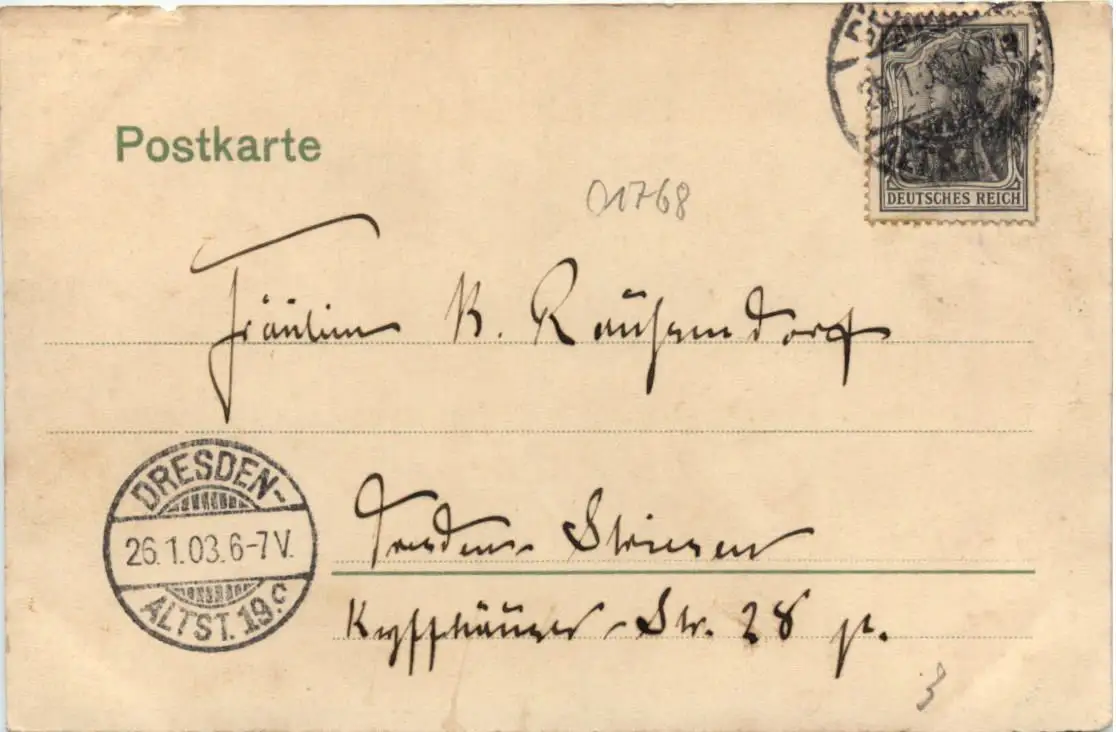 Postkarte
DEUTSCHES REICH
01768
Fräulein K. Räuhsendorf
DRESDEN-
26.1.03.6-7V.
ALTST. 19.c
Dresden-Striesen
Kyffhäuser-Str. 28 pt.
3